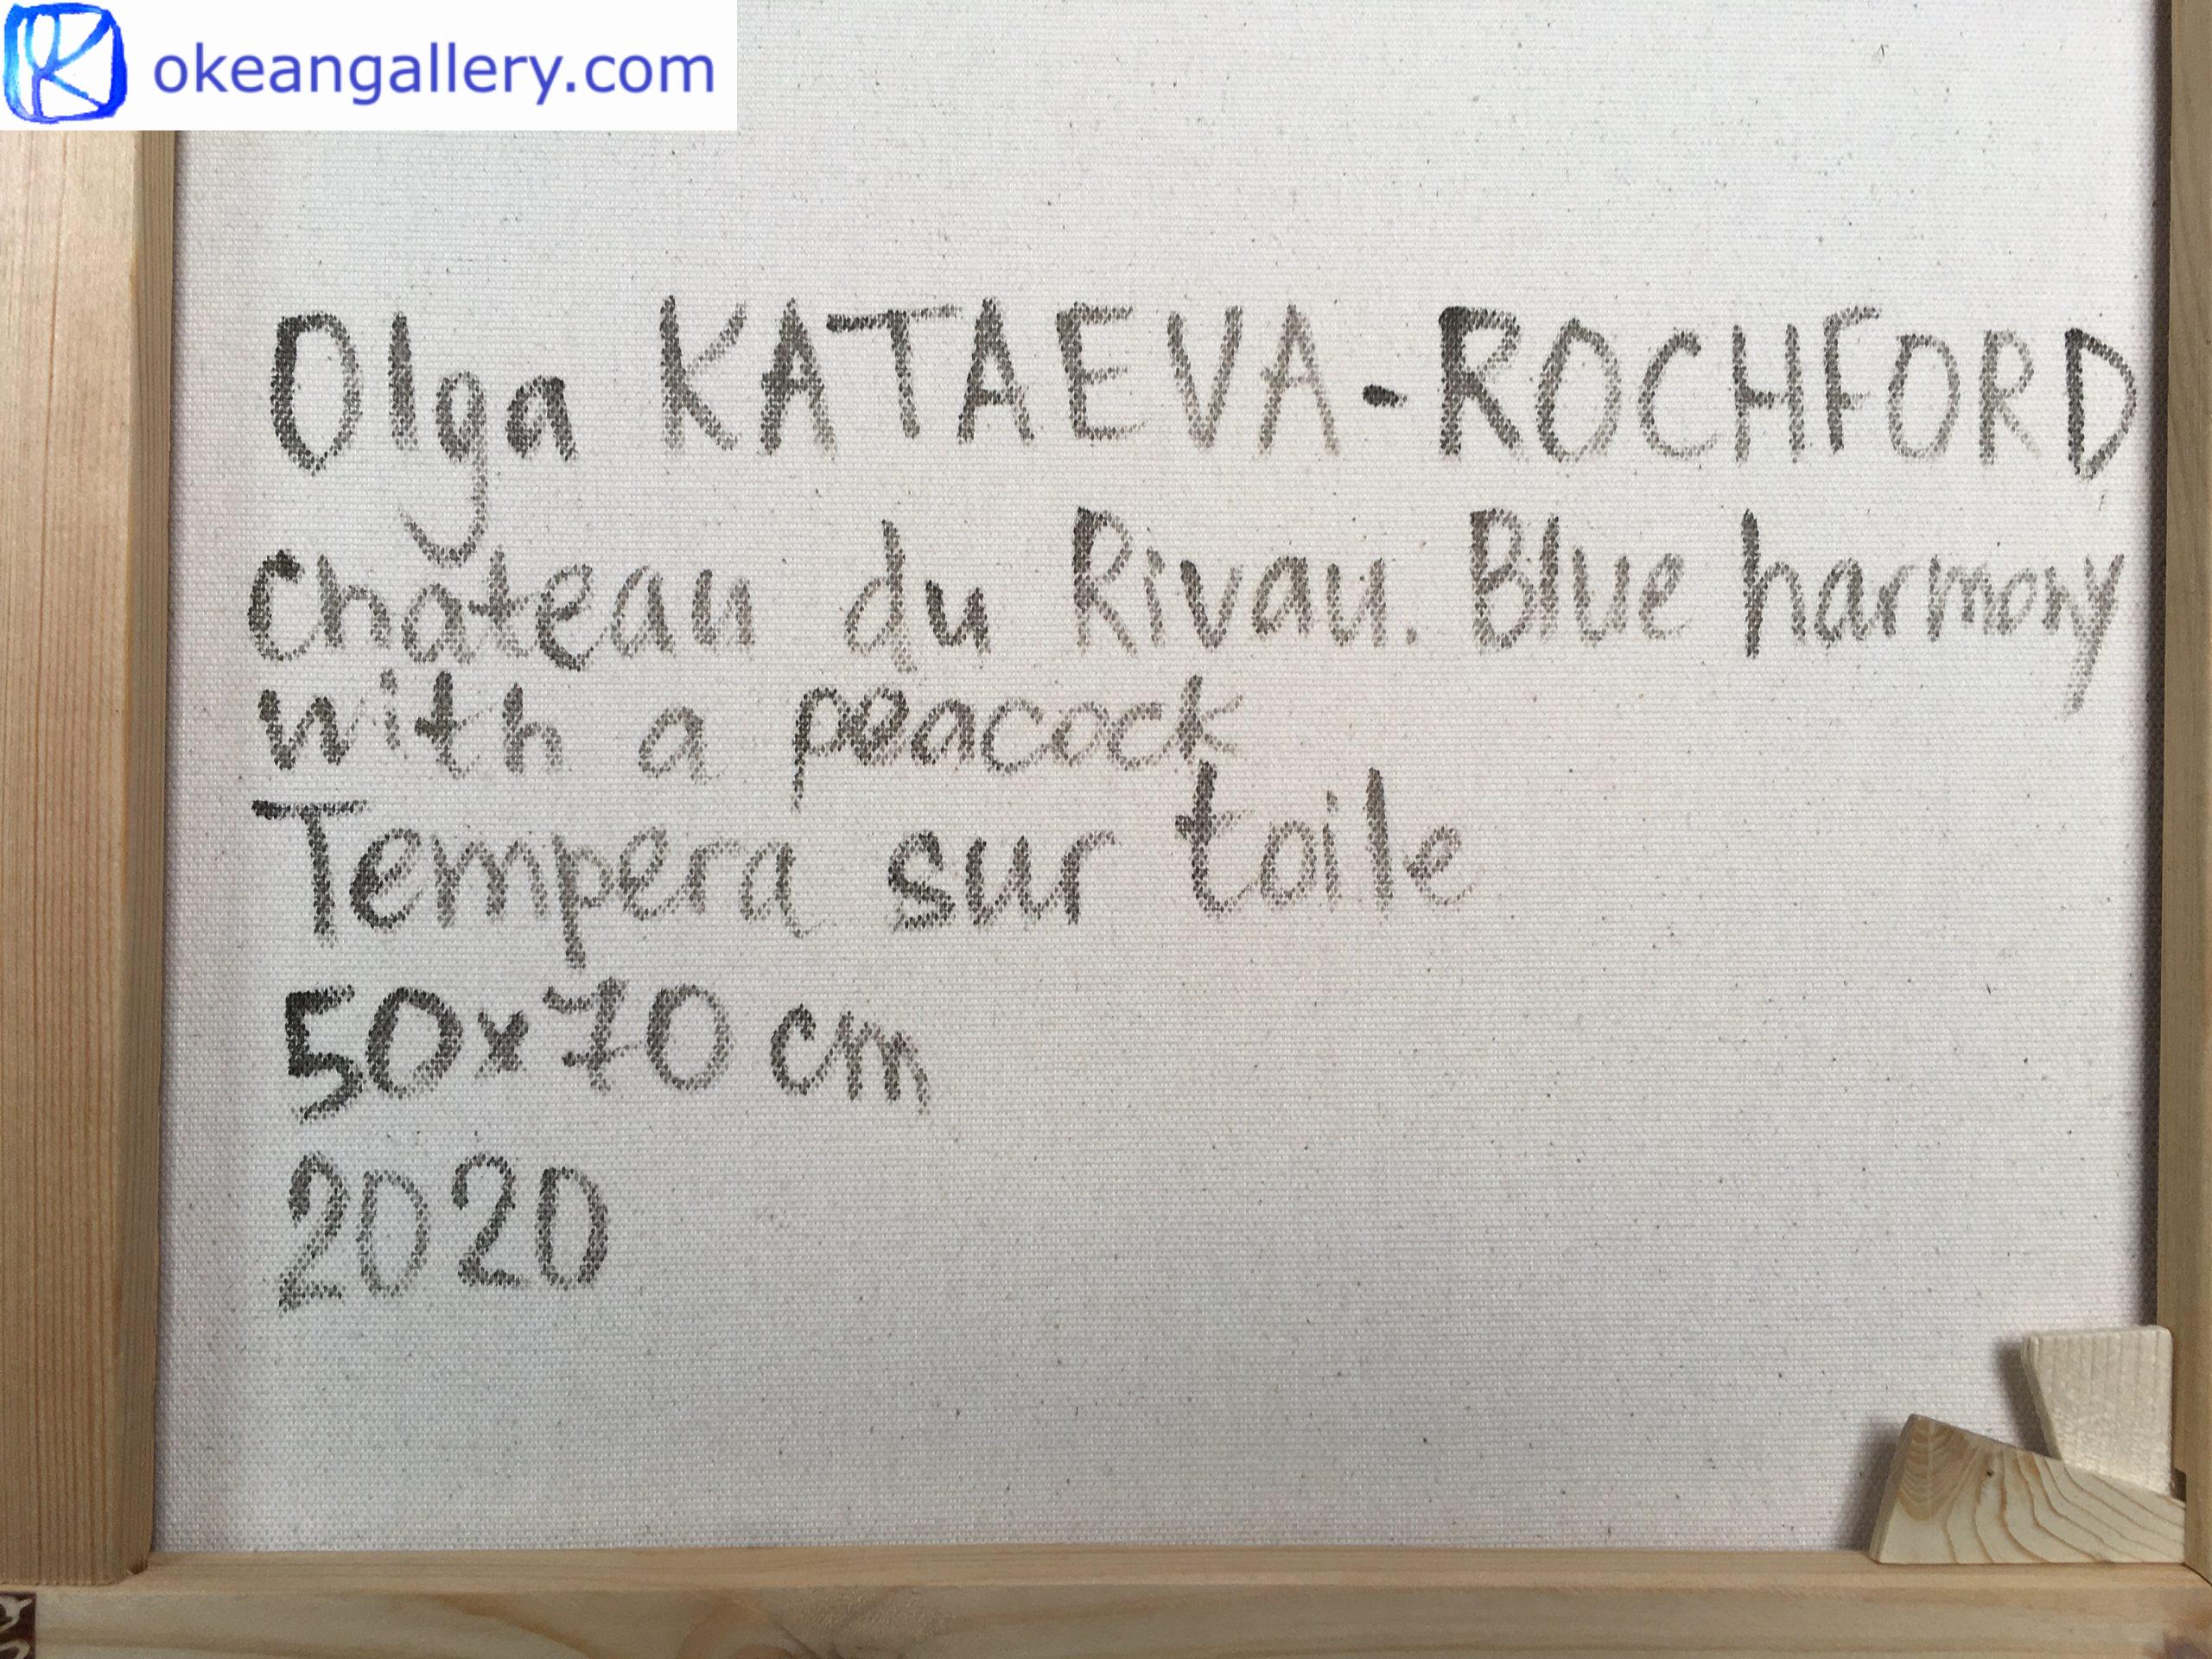 okeangallery.com
Olga KATAEVA-ROCHFORD
château du Rivau. Blue harmony
with a peacock
Tempera sur toile
50x70 cm
2020